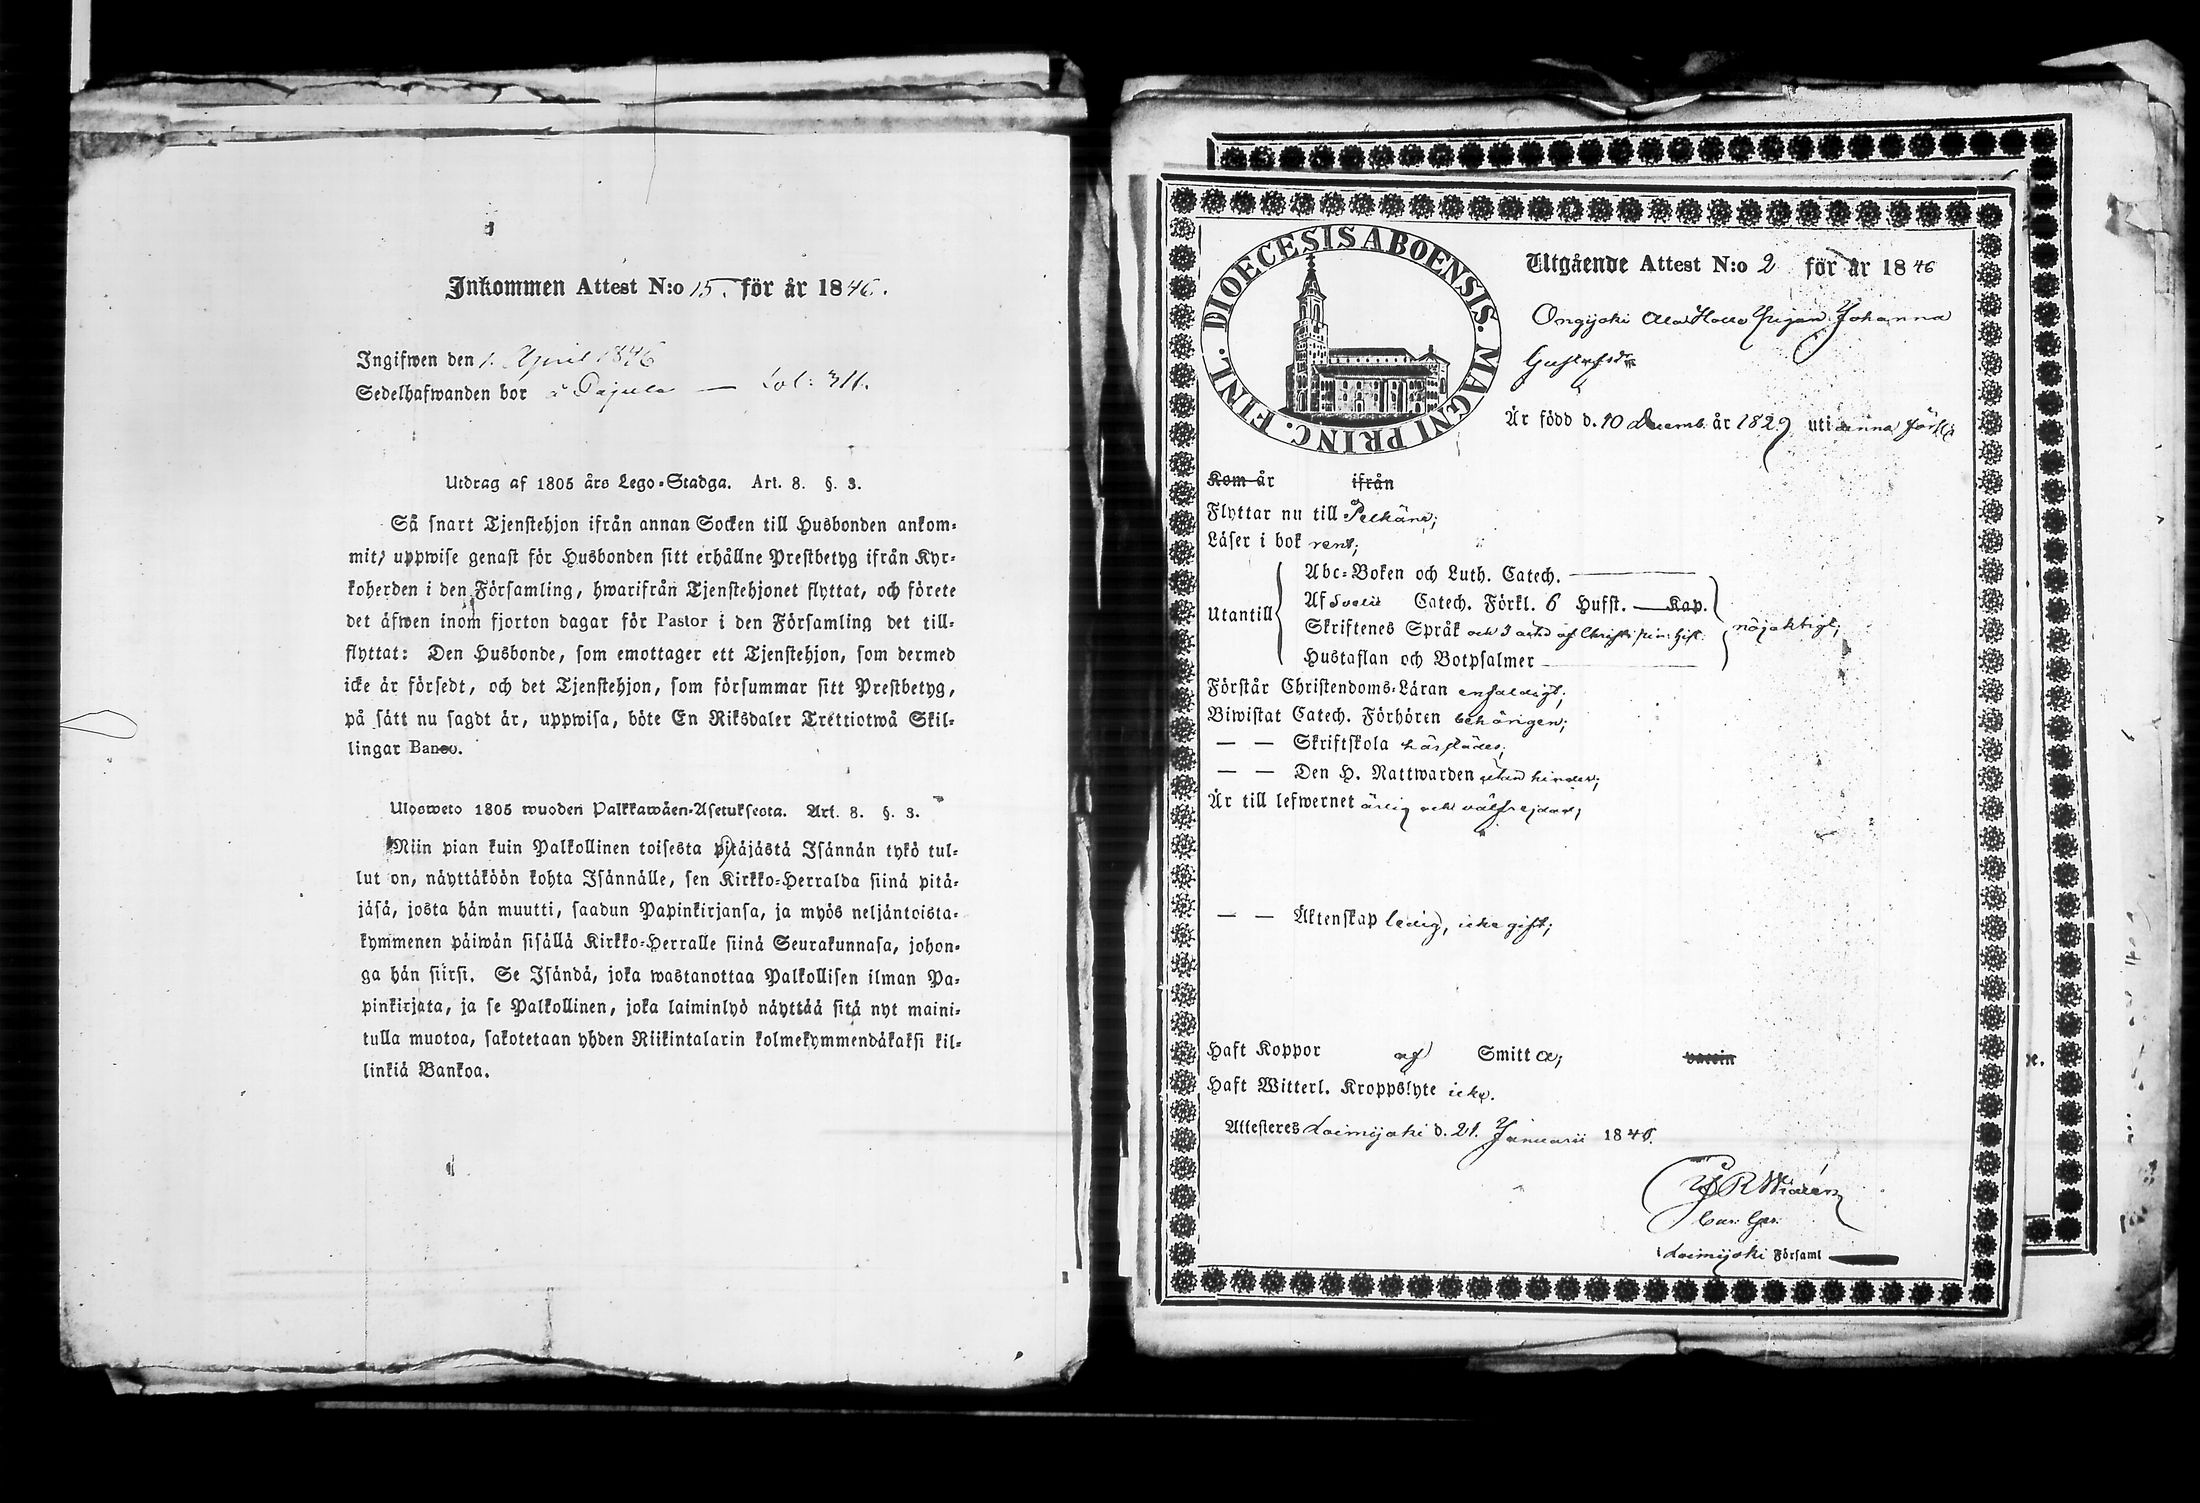 Inkommen Attest N:o 15. för år 1846.
Ingifwen den 1. April 1846
Sedelhafwanden bor å Pajula — fol: 311.
Utdrag af 1805 års Lego-Stadga. Art. 8. §. 3.
Så snart Tjenstehjon ifrån annan Socken till Husbonden ankom-
mit, uppwise genast för Husbonden sitt erhållne Prestbetyg ifrån Kyr-
koherden i den Församling, hwarifrån Tjenstehjonet flyttat, och förete
det äfwen inom fjorton dagar för Pastor i den Församling det till-
flyttat: Den Husbonde, som emottager ett Tjenstehjon, som dermed
icke är försedt, och det Tjenstehjon, som försummar sitt Prestbetyg,
på sätt nu sagdt är, uppwisa, böte En Riksdaler Trettiotwå Skil-
lingar Banco.
Ulosweto 1805 wuoden Palkkawäen-Asetuksesta. Art. 8. §. 3.
Niin pian kuin Palkollinen toisesta pitäjästä Isännän tykö tul-
lut on, näyttäköön kohta Isännälle, sen Kirkko-Herralda siinä pitä-
jäsä, josta hän muutti, saadun Papinkirjansa, ja myös neljäntoista-
kymmenen päiwän sisällä Kirkko-Herralle siinä Seurakunnasa, johon-
ga hän siirsi. Se Isändä, joka wastanottaa Palkollisen ilman Pa-
pinkirjata, ja se Palkollinen, joka laiminlyö näyttää sitä nyt maini-
tulla muotoa, sakotetaan yhden Riikintalarin kolmekymmendäkaksi kil-
linkiä Bankoa.
DIOECESIS ABOENSIS. MAGNI PRINC. FINL.
Utgående Attest N:o 2 för år 1846
Ongijoki Ala Pigan Johanna
Gustafsdr
Är född d. 10 Decemb. år 1829 uti denna Förs:
Kom år ifrån
Flyttar nu till Pelkäne;
Läser i bok rent;
Abc-Boken och Luth. Catech.
Utantill
Af Svebil. Catech. Förkl. 6 Hufst. — Kap.
Skriftenes Språk och
Hustaflan och Botpsalmer
nöjaktigt;
Förstår Christendoms-Läran enfaldigt;
Biwistat Catech. Förhören behörigen;
— — Skriftskola härstädes;
— — Den H. Nattwarden utan hinder;
Är till lefwernet ärlig och välfrejdad;
— — Äktenskap ledig, icke gift;
Haft Koppor af Smitta; vaccin
Haft Witterl. Kroppslyte icke.
Attesteras Loimijoki d. 21. Januarii 1846.
Loimijoki Församl